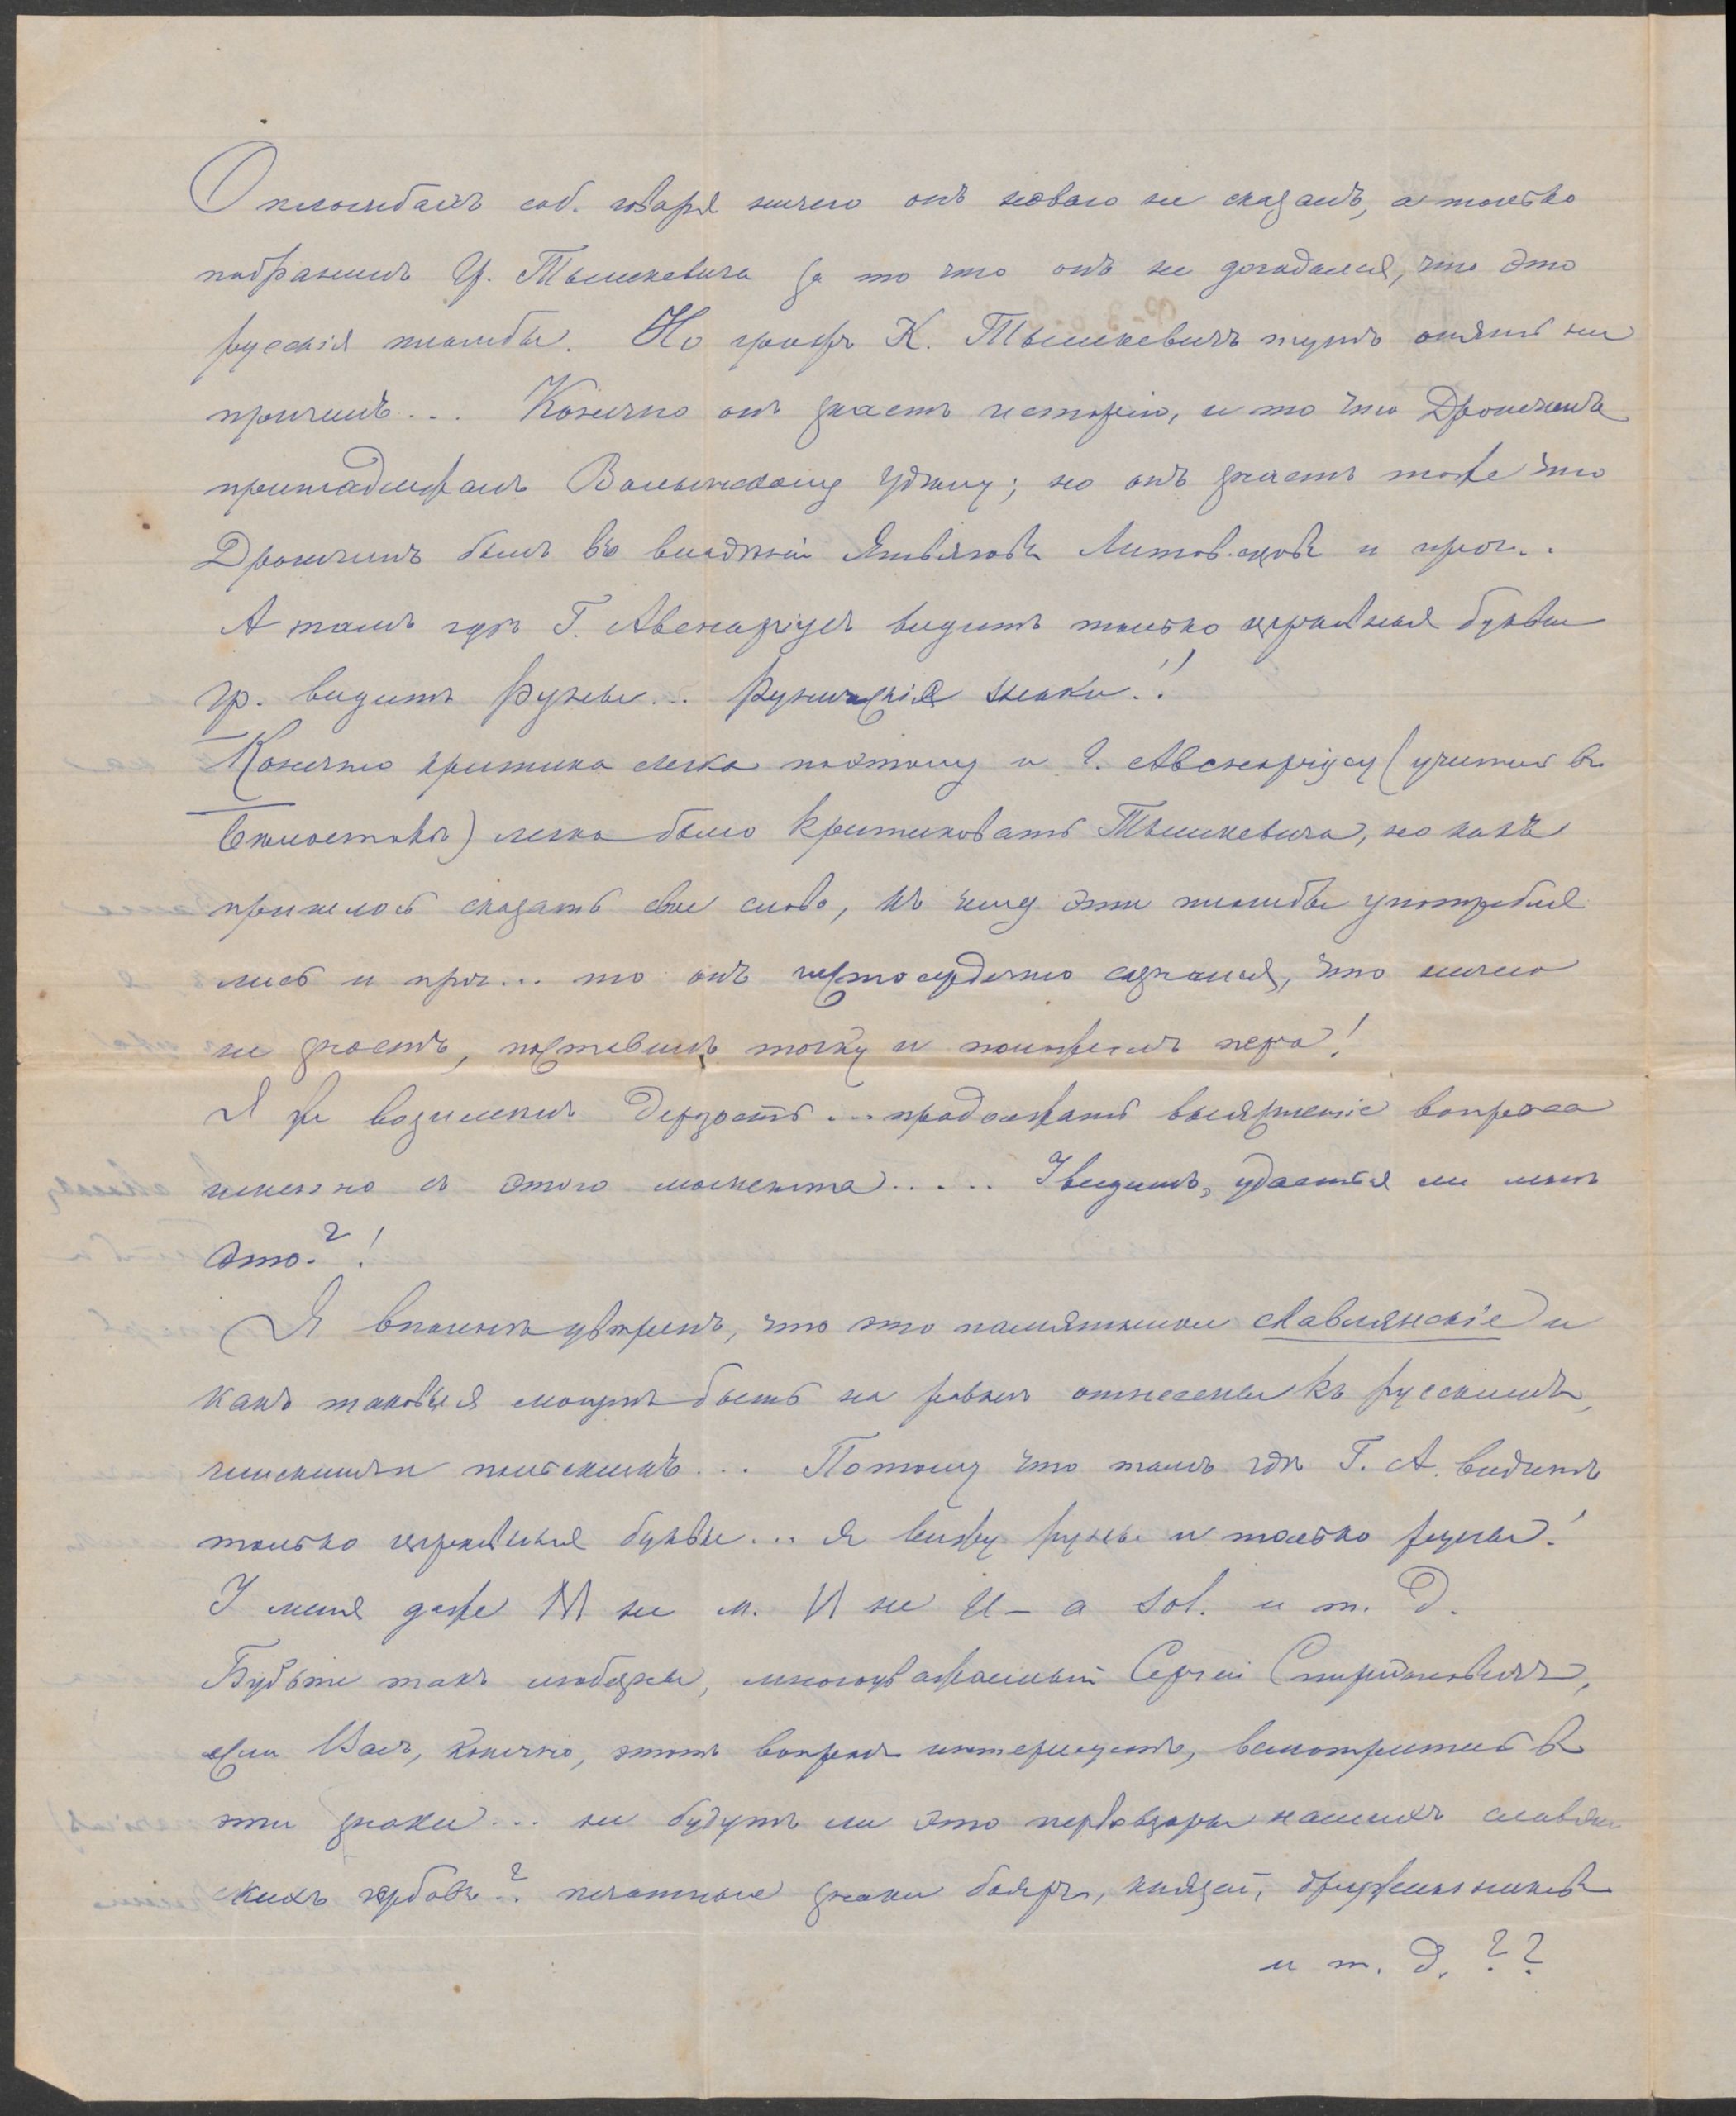 О пломбахъ соб. говоря ничего онъ новаго не сказалъ, а только
побранилъ Гр. Тышкевича за то что онъ не догадался, что это
русскія пломбы. Но графъ К. Тышкевичъ тутъ опять ни
причемъ... Конечно онъ знаетъ исторію, и то что Дрогичинъ
принадлежалъ Волынскому Удѣлу; но онъ знаетъ тоже что
Дрогичинъ былъ во владѣніи Ятвяговъ Литовцовъ и проч..
А тамъ гдѣ Г. Авенаріусъ видитъ только церковныя буквы
гр. видитъ Руны... Руническія знаки.!
Конечно критика легка поэтому и Г. Авенаріусу (учитель въ
Бѣлостокѣ) легко было критиковать Тышкевича, но какъ
пришлось сказать свое слово, къ чему эти пломбы употребля
лись и проч... то онъ чистосердечно сознался, что ничего
не знаетъ, поставилъ точку и положилъ перо!
Я же возимѣлъ дерзость... продолжать выясненіе вопроса
именно съ этого момента..... Увидимъ, удастся ли мнѣ
это.?!
Я вполнѣ увѣренъ, что это памятники славянскіе и
какъ таковыя могутъ быть на равнѣ отнесены къ русскимъ,
чешскимъ и польскимъ... Потому что тамъ гдѣ Г. А. видитъ
только церковныя буквы... я вижу руны и только руны!
У меня даже М не м. И не И – а Sol. и т. д.
Будьте такъ любезны, многоуважаемый Сергѣй Спиридоновичъ,
если Васъ, конечно, этотъ вопросъ интересуетъ, всмотритесь въ
эти знаки... не будутъ ли это первообразы нашихъ славян
скихъ гербовъ? печатные знаки бояръ, князей, дружинниковъ
и т. д. ??